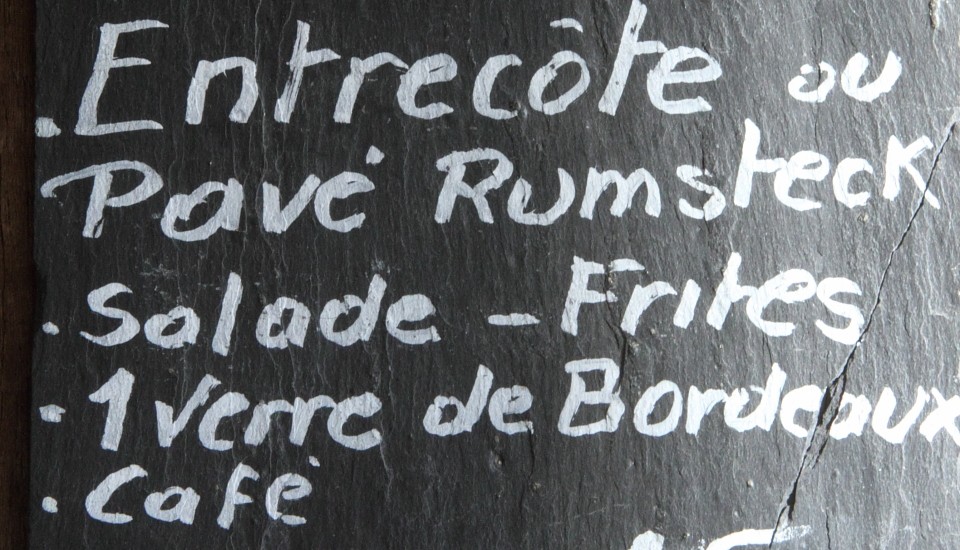 . Entrecôte ou
Pavé Rumsteck
. Salade - Frites
. 1 Verre de Bordeaux
. Café